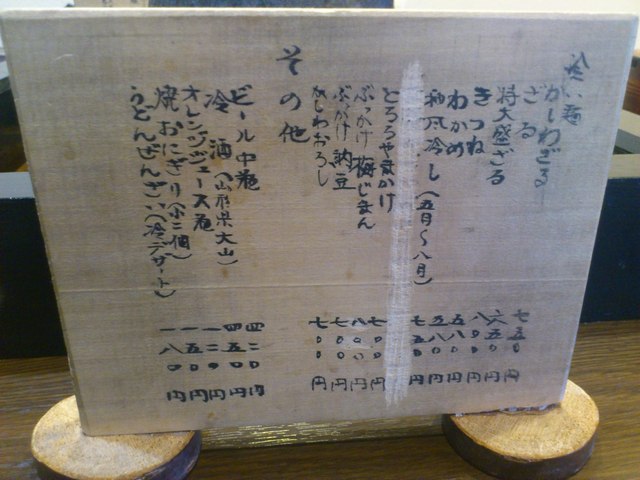 冷い麺
かしわざる 七五〇円
ざる 六五〇円
特大盛ざる 八〇〇円
きつね 五八〇円
わかめ 五八〇円
和風冷し(五月〜八月) 七五〇円
とろろやまかけ 七〇〇円
ぶっかけ梅じまん 八〇〇円
ぶっかけ納豆 七〇〇円
かしわおろし 七〇〇円
その他
ビール中瓶 四二〇円
冷酒(山形県大山) 四五〇円
オレンジジュース瓶 一二〇円
焼おにぎり(小二個) 一五〇円
うどんぜんざい(冷デザート) 一八〇円